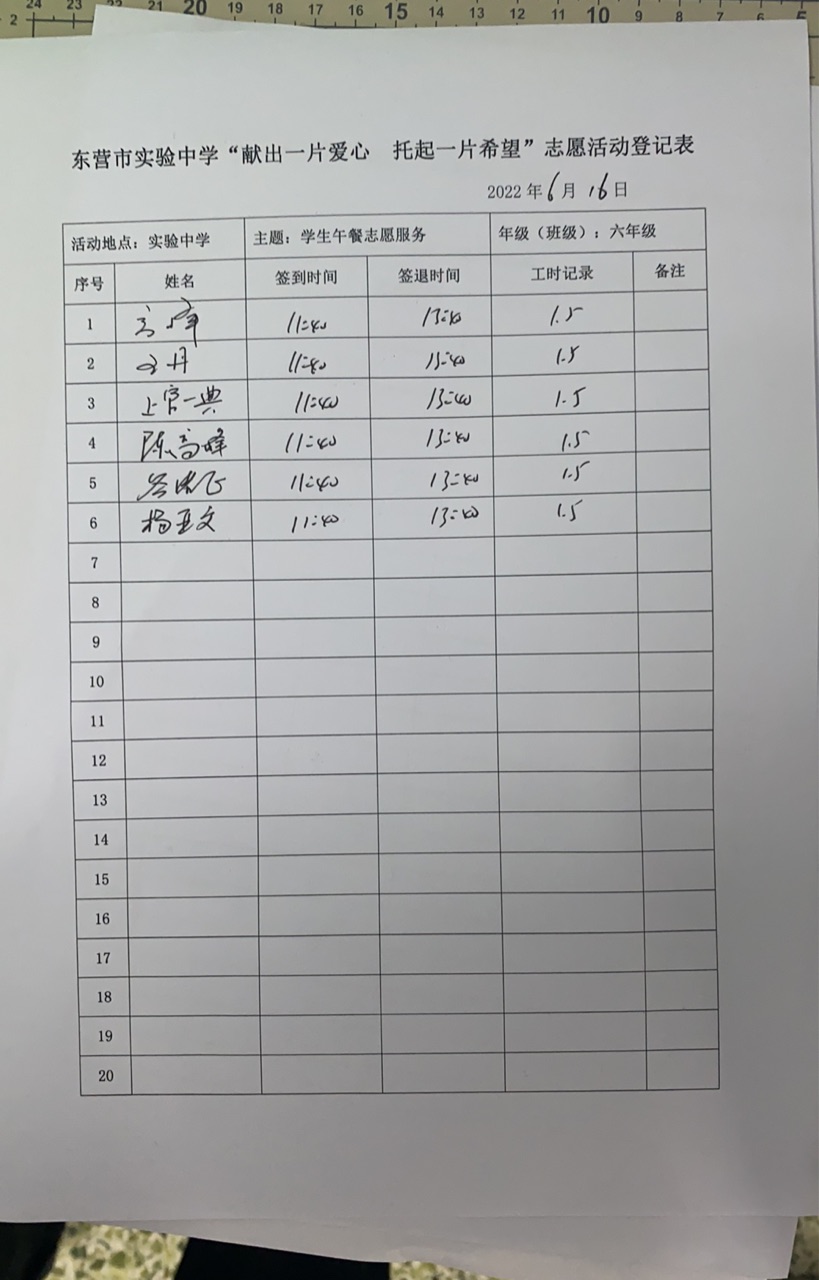 24 23 22 21 20 19 18 17 16 15 14 13 12 11 10 9 8 7 6 5
2
东营市实验中学“献出一片爱心 托起一片希望”志愿活动登记表
2022 年 6 月 16 日
活动地点：实验中学 主题：学生午餐志愿服务 年级（班级）：六年级
序号 姓名 签到时间 签退时间 工时记录 备注
1 11:40 13:40 1.5
2 11:40 13:40 1.5
3 上官一典 11:40 13:40 1.5
4 陈高峰 11:40 13:40 1.5
5 11:40 13:40 1.5
6 杨亚文 11:40 13:40 1.5
7
8
9
10
11
12
13
14
15
16
17
18
19
20